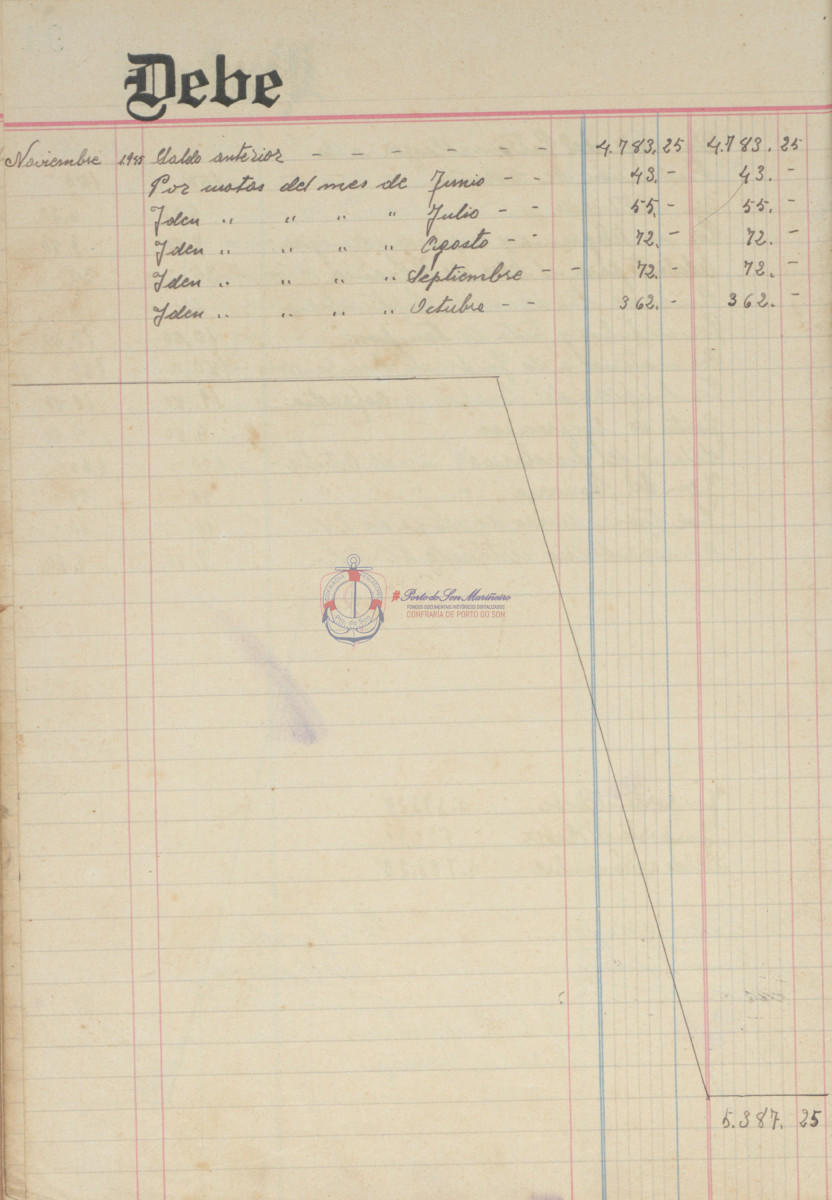 Debe
Noviembre 1945 Saldo anterior - - - - - - 4.783,25 4.783.25
Por notas del mes de Junio - - 43.- 43.-
Iden " " " " Julio - - 55.- 55.-
Iden " " " " Agosto - - 72.- 72.-
Iden " " " " Septiembre - - 72.- 72.-
Iden " " " " Octubre - - 362.- 362.-
#Porto do Son Mariñeiro
FONDOS DOCUMENTAIS HISTÓRICOS DIXITALIZADOS
CONFRARÍA DE PORTO DO SON
5.387.25